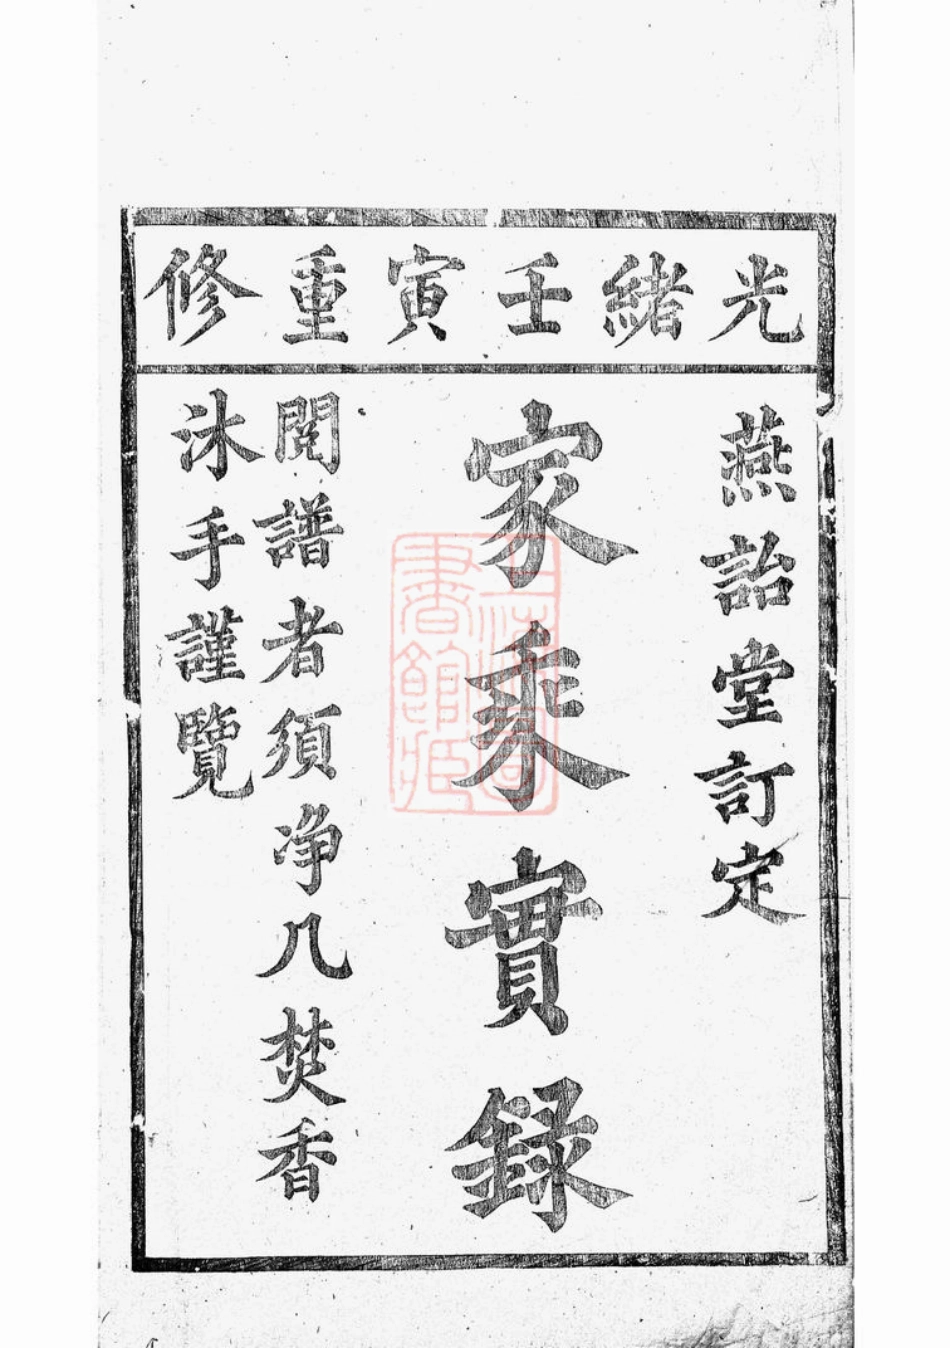 光緒壬寅重修
燕詒堂訂定
家乘實録
閱譜者須净几焚香
沐手謹覽